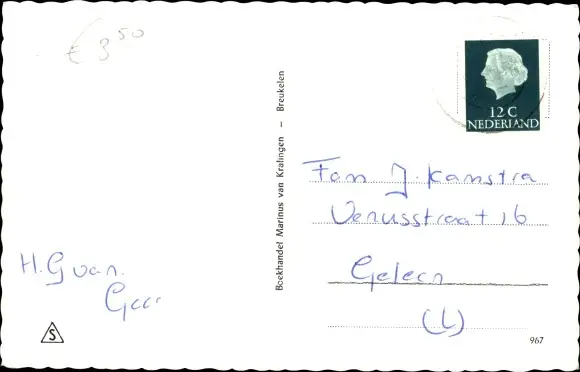 € 3 50
12 C
NEDERLAND
Boekhandel Marinus van Kralingen – Breukelen
Fam J. Kamstra
Venusstraat 16
Geleen
(L)
H. G van.
S
967